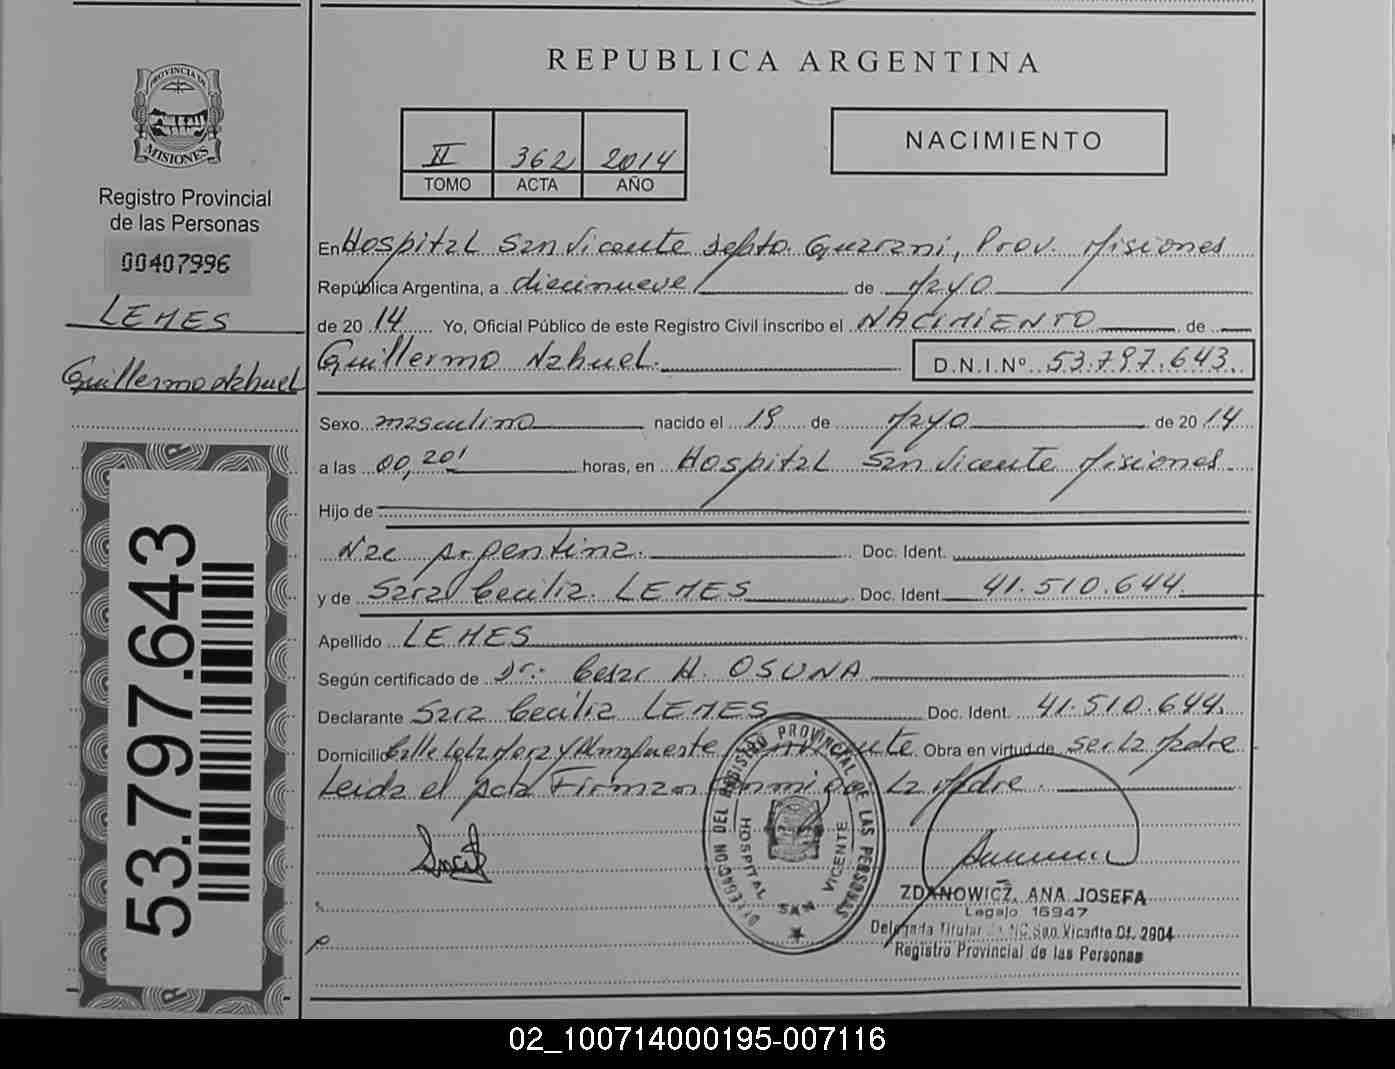 REPUBLICA ARGENTINA
PROVINCIA DE
MISIONES
Registro Provincial
de las Personas
00407996
LEMES
Guillermo Nahuel
53.797.643
II 362 2014
TOMO ACTA AÑO
NACIMIENTO
En Hospital San Vicente Depto. Guarani, Prov. Misiones
República Argentina, a diecinueve de Mayo
de 2014 Yo, Oficial Público de este Registro Civil inscribo el NACIMIENTO de
Guillermo Nahuel. D.N.I.Nº 53.797.643.
Sexo masculino nacido el 19 de Mayo de 2014
a las 00,20' horas, en Hospital San Vicente Misiones
Hijo de
Nac Argentina. Doc. Ident.
y de Sara Cecilia LEMES Doc. Ident. 41.510.644.
Apellido LEMES
Según certificado de Dr. Cesar H. OSUNA
Declarante Sara Cecilia LEMES Doc. Ident. 41.510.644.
Domicilio Calle y Almafuerte Obra en virtud de ser la Madre
Leida el acta Firman conmigo La Madre.
DELEGACION DEL REGISTRO PROVINCIAL DE LAS PERSONAS
HOSPITAL SAN VICENTE
ZDANOWICZ, ANA JOSEFA
Legajo 16947
Delegada Titular San Vicente Of. 2904
Registro Provincial de las Personas
02_100714000195-007116